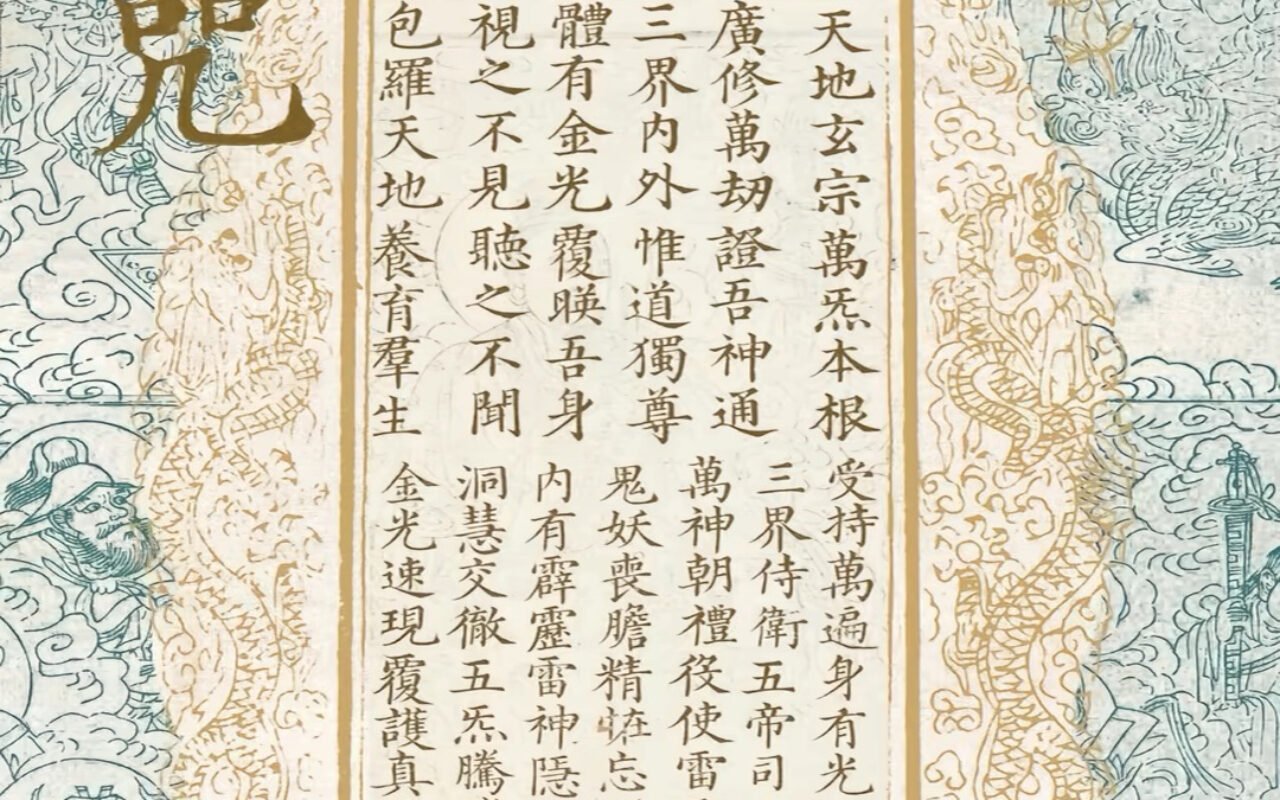 天地玄宗萬炁本根
廣修萬劫證吾神通
三界内外惟道獨尊
體有金光覆暎吾身
視之不見聽之不聞
包羅天地養育羣生
受持萬遍身有光
三界侍衛五帝司
萬神朝禮役使雷
鬼妖喪膽精恠忘
内有霹靂雷神隱
洞慧交徹五炁騰
金光速現覆護真
咒